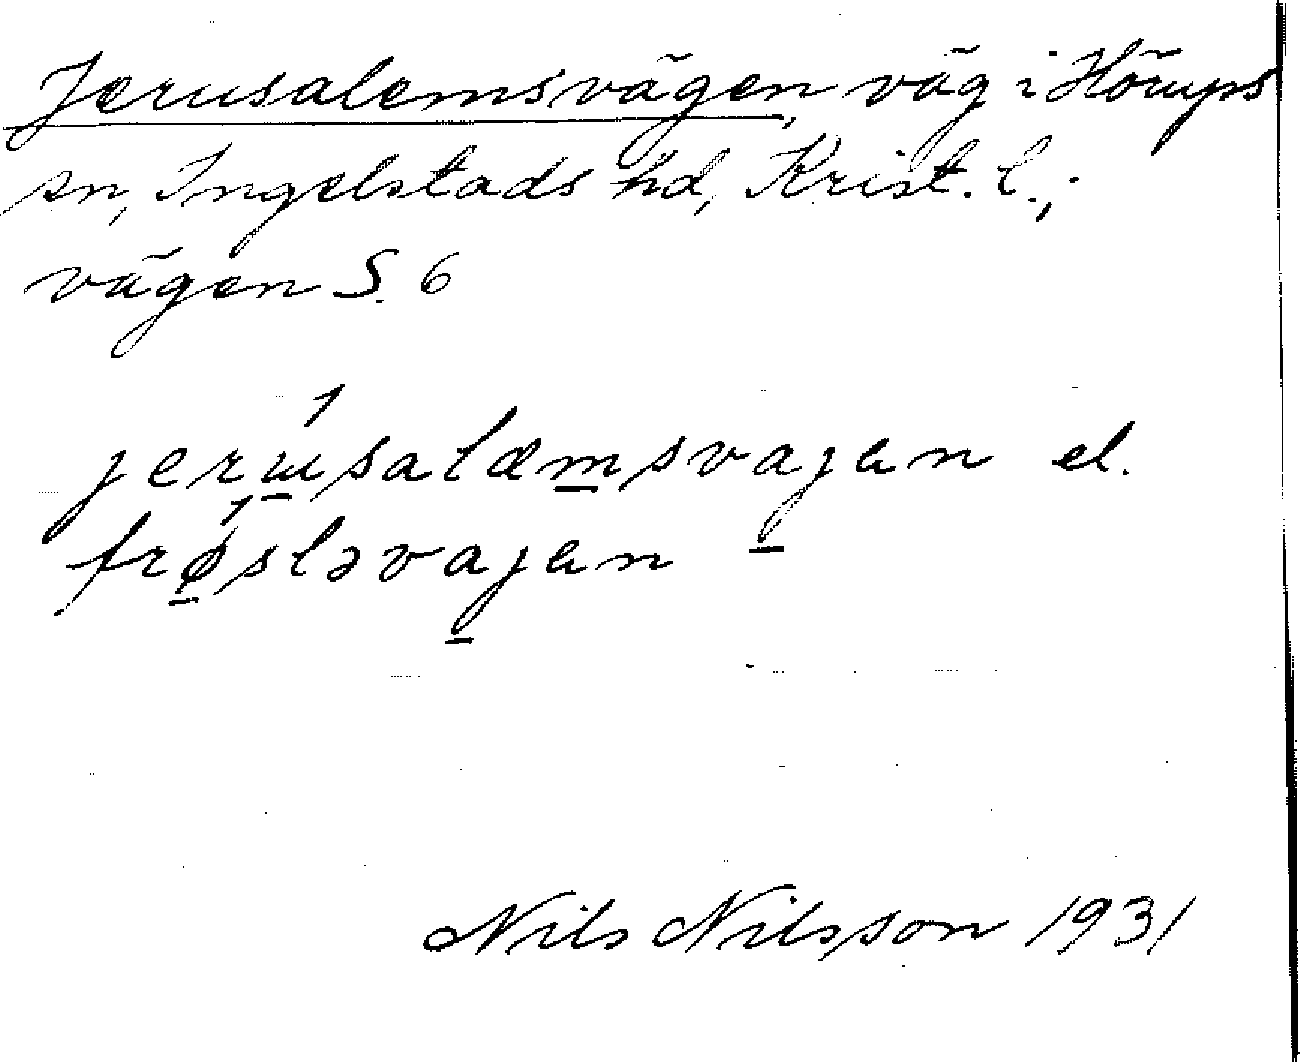 Jerusalemsvägen, väg i Hörups
sn, Ingelstads hd, Krist. l.;
vägen S. 6
jerusalæmsvajen el.
frøsləvajen
Nils Nilsson 1931